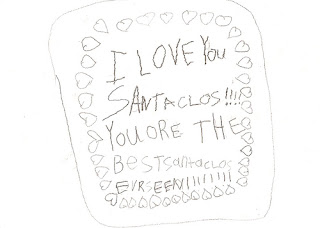 I LOVE YOU
SANTACLOS!!!!
YOU ORE THE
BEST santaclos
EVRSEEN!!!!!!!